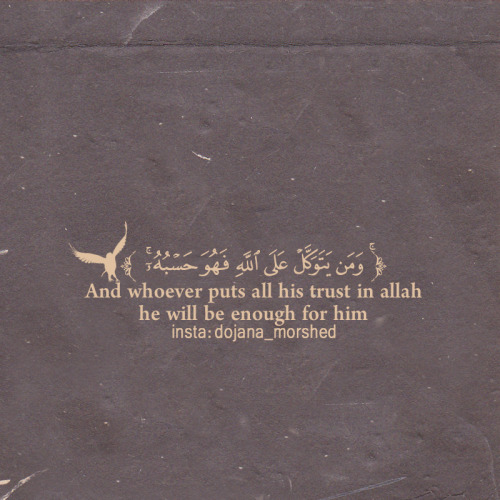 ﴿ وَمَن يَتَوَكَّلْ عَلَى ٱللَّهِ فَهُوَ حَسْبُهُۥٓ ۚ ﴾
And whoever puts all his trust in allah
he will be enough for him
insta: dojana_morshed